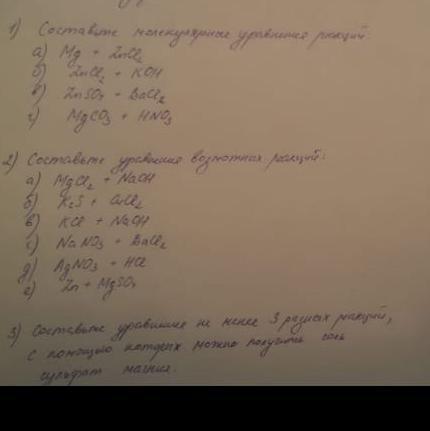 1) Составьте молекулярные уравнения реакций:
а) Mg + ZnCl₂
б) ZnCl₂ + KOH
в) ZnSO₄ + BaCl₂
г) MgCO₃ + HNO₃
2) Составьте уравнения возможных реакций:
а) MgCl₂ + NaOH
б) K₂S + CuCl₂
в) KCl + NaOH
г) NaNO₃ + BaCl₂
д) AgNO₃ + HCl
е) Zn + MgSO₄
3) Составьте уравнение не менее 3 разных реакций,
с помощью которых можно получить соль
сульфат магния.